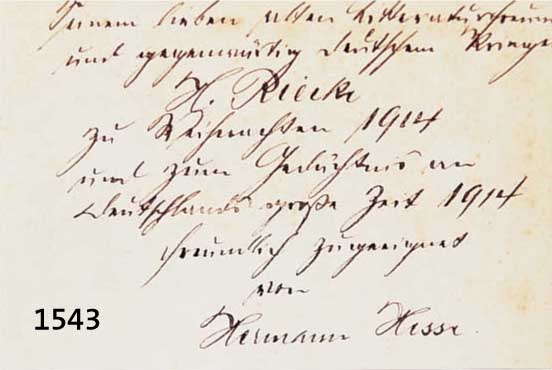 Seinem lieben alten Litteraturfreun
und gegenwärtig deutschem Kriege
H. Rieck
zu Weihnachten 1914
und zum Gedächtnis an
Deutschlands große Zeit 1914
freundlich zugeeignet
von
Hermann Hesse.
1543